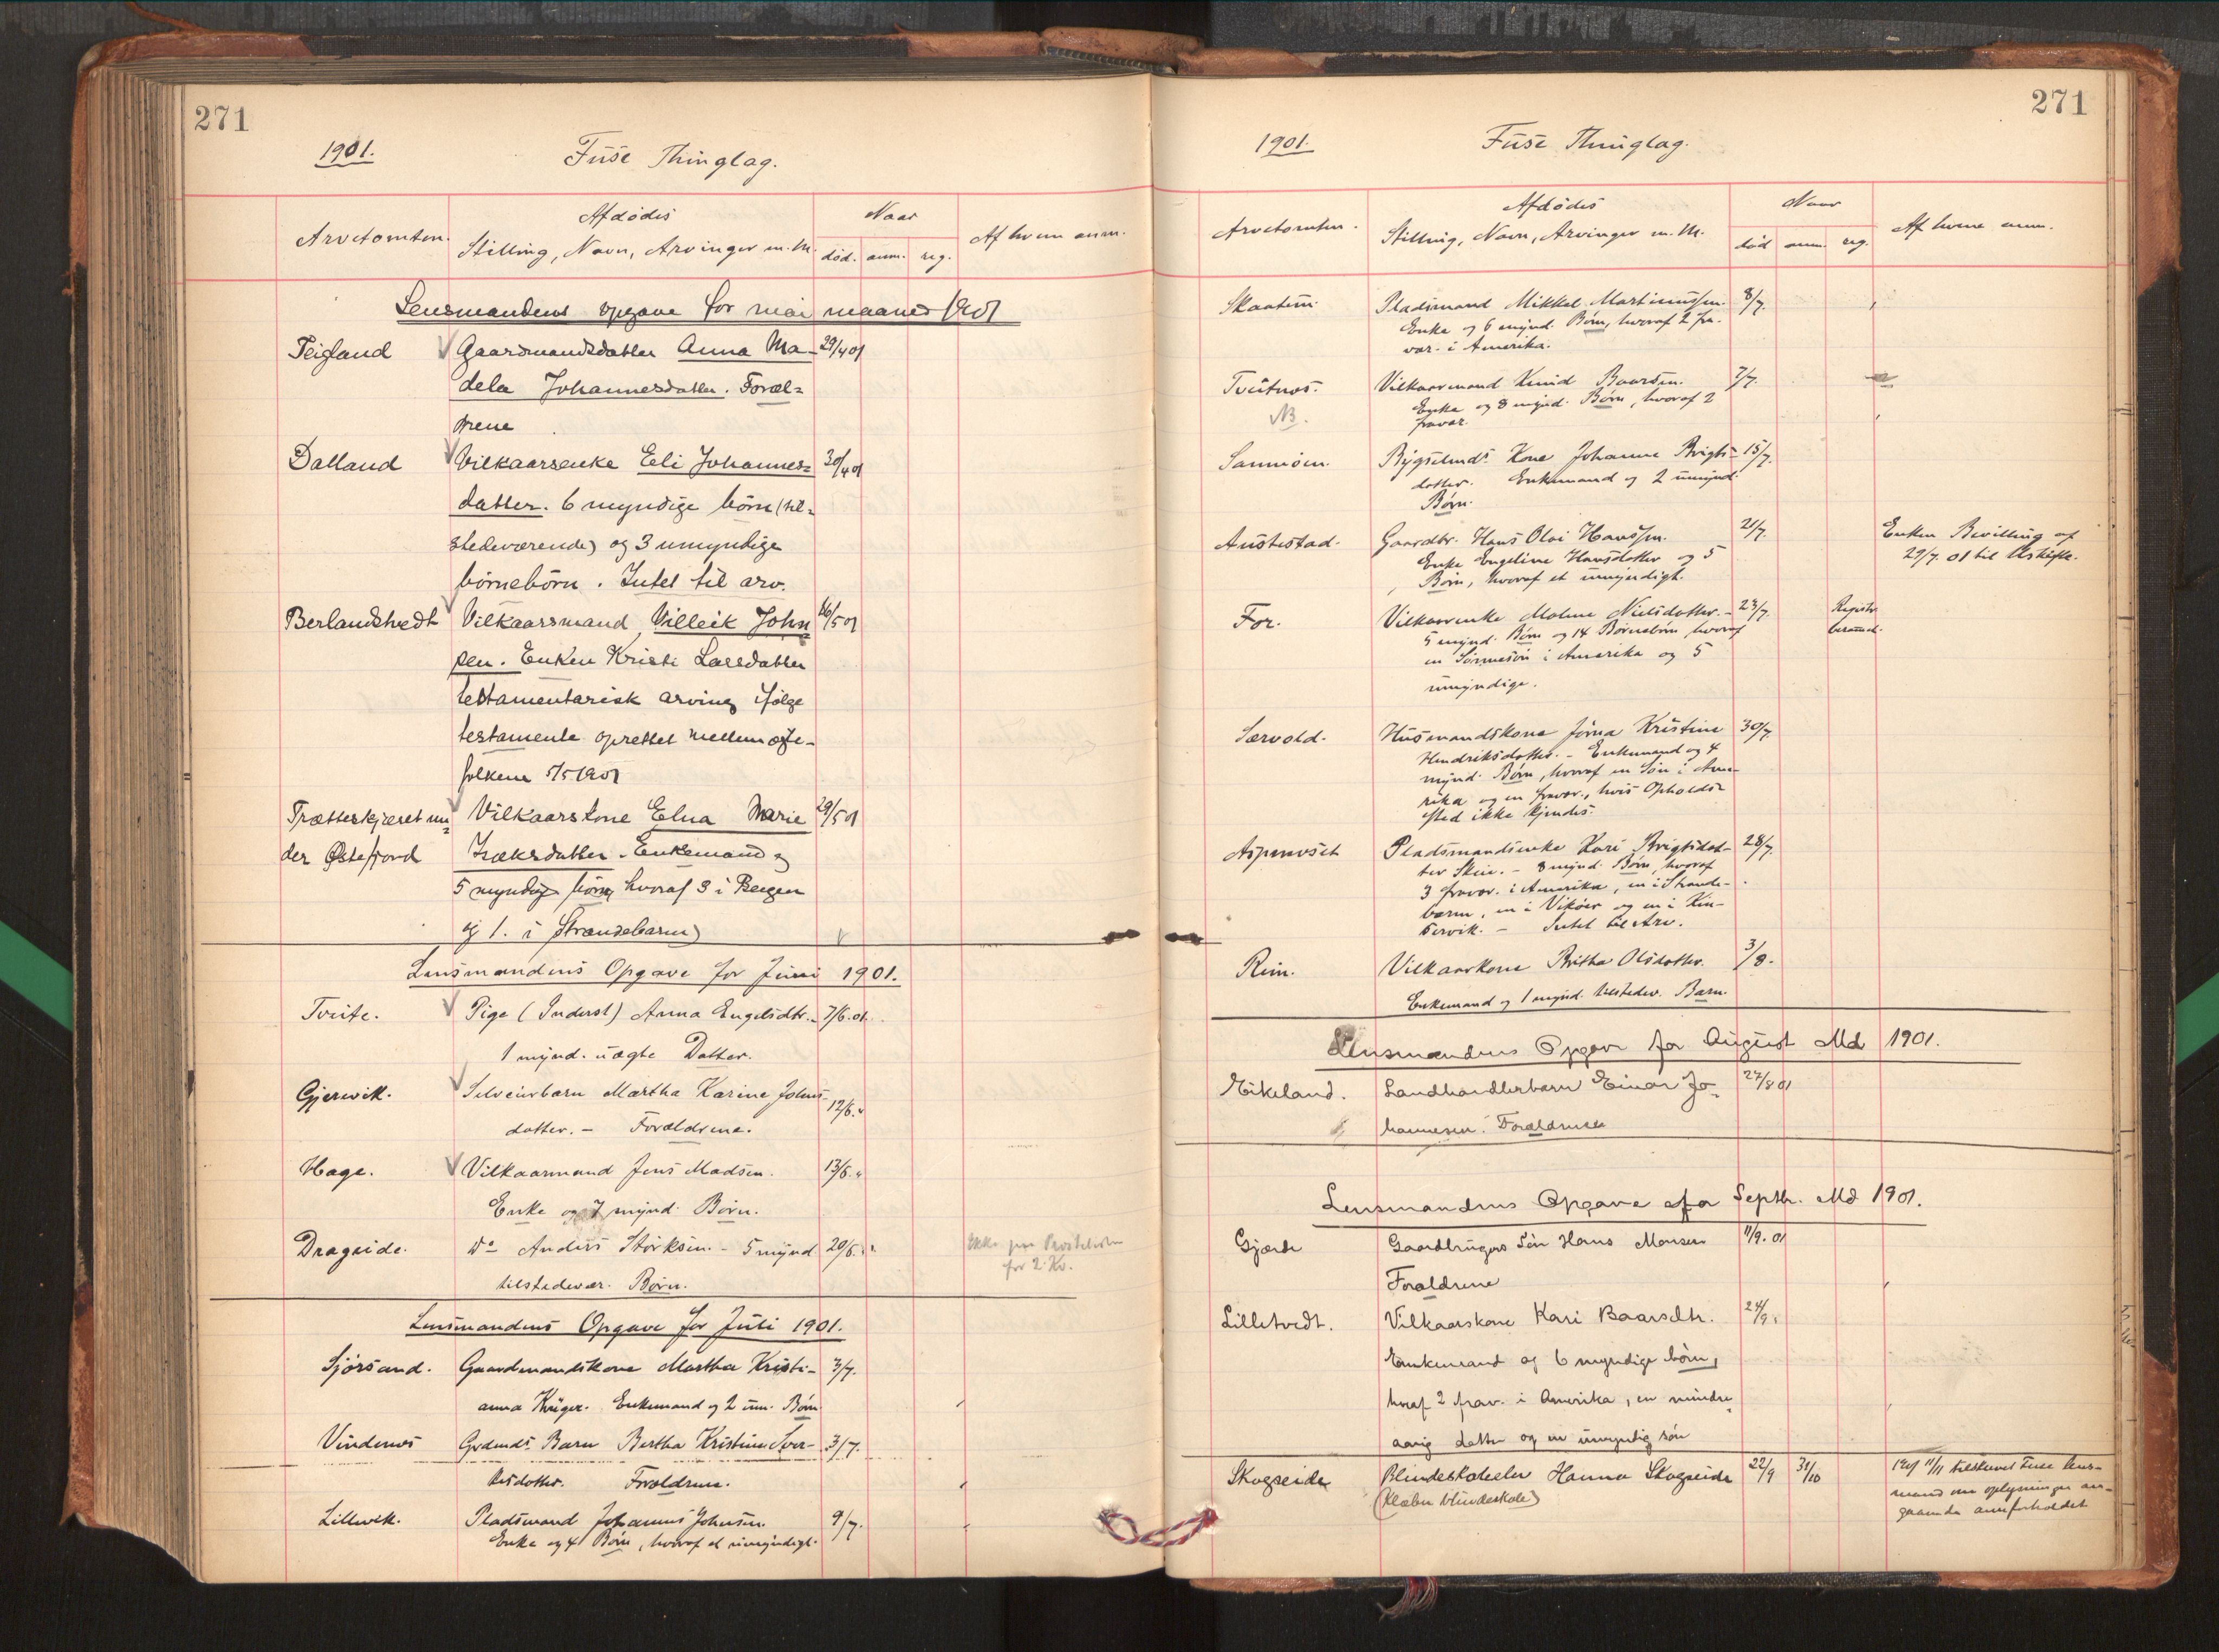 271
1901.
Fuse Thinglag.
Arvetomten.
Afdødes
Stilling, Navn, Arvinger m. M.
Naar
død. anm. reg.
Af hvem anm.
Lensmandens opgave for mai maaned 1901
Teigland Gaardmandsdatter Anna Ma- 29/4 01
dela Johannesdatter. Foræl-
drene
Dalland Vilkaarsenke Eli Johannes- 30/4 01
datter. 6 myndige børn (til-
stedeværende) og 3 umyndige
børnebørn. Intet til arv.
Berlandstvedt Vilkaarsmand Villeik John 16/5 01
sen. Enken Kristi Larsdatter
testamentarisk arving ifølge
testamente oprettet mellem ægte-
folkene 5/5 1901
Trætteskjæret un- Vilkaarskone Elna Marie 29/5 01
der Østefjord Isaksdatter. Enkemand og
5 myndige børn, hvoraf 3 i Bergen
og 1. i Strandebarm)
Lensmandens Opgave for Juni 1901.
Tveite. Pige (Inderst) Anna Engelsdtr. 7/6.01.
1 mynd. uægte Datter.
Gjervik. Selveierbarn Martha Karine Johns- 12/6. "
datter. - Forældrene.
Hage. Vilkaarmand Jens Madsen. 13/6. "
Enke og 7 mynd. Børn.
Drageide. Do Anders Størksen. - 5 mynd 20/6. "
tilstedevær. Børn.
Ikke
for 2. Kv.
Lensmandens Opgave for Juli 1901.
Sjørsand. Gaardmandskone Martha Kristi- 3/7.
anna Krüger. Enkemand og 2 um. Børn
Vindenes Grdmds Barn Bertha Kristine Sver- 3/7.
resdatter. Forældrene.
Lillevik. Pladsmand Johannes Johnsen. 9/7.
Enke og 4 Børn, hvoraf et umyndigt.
271
1901.
Fuse Thinglag.
Arvetomten.
Afdødes
Stilling, Navn, Arvinger m. M.
Naar
død anm. reg.
Af hvem anm.
Skaatun Pladsmand Mikkel Martinussen. 8/7.
Enke og 6 mynd. Børn, hvoraf 2 fra-
vær. i Amerika.
Tveitnes. Vilkaarmand Knud Baarsen. 7/7.
NB. Enke og 8 mynd. Børn, hvoraf 2
fravær.
Sannøen. Bygselmds Kone Johanne Brigts- 15/7.
datter. Enkemand og 2 umynd.
Børn.
Austestad. Gaardbr. Hans Olai Hanssen. 21/7. Enken Bevilling af
Enke Engeline Hansdatter og 5 29/7. 01 til Uskifte.
Børn, hvoraf et umyndigt.
For. Vilkaarenke Malene Nielsdatter. - 23/7. Registr.
5 mynd. Børn og 14 Børnebørn hvoraf berammet.
en Sønnesøn i Amerika og 5
umyndige.
Særvold. Husmandskone Jørna Kristine 30/7.
Hendriksdatter. - Enkemand og 4
mynd. Børn, hvoraf en Søn i Ame-
rika og en fravær., hvis Opholds-
sted ikke kjendes.
Aspenvoset Pladsmandsenke Kari Brigtsdat- 28/7.
ter Skeie. - 8 mynd. Børn, hvoraf
3 fravær. i Amerika, en i Strande-
barm, en i Vikøer og en i Kin-
servik. - Intet til Arv.
Rein. Vilkaarkone Britha Olsdatter. 3/8.
Enkemand og 1 mynd. tilstedev. Barn.
Lensmandens Opgave for August Md 1901.
Eikeland. Landhandlerbarn Einar Jo- 27/8 01
hannesen. Forældrene
Lensmandens Opgave for Septbr. Md 1901.
Gjærde Gaardbrugers Søn Hans Monsen 11/9. 01
Forældrene
Lilletvedt. Vilkaarskone Kari Baarsdtr. 24/9.
Enkemand og 6 myndige børn,
hvoraf 2 frav. i Amerika, en mindre-
aarig datter og en umyndig søn
Skogseide Blindeskoleelev Hanna Skogseide 22/9 31/10
(Klæbu blindeskole)
1901 11/11 tilskrevet Fuse lens-
mand om oplysninger an-
gaaende arveforholdet